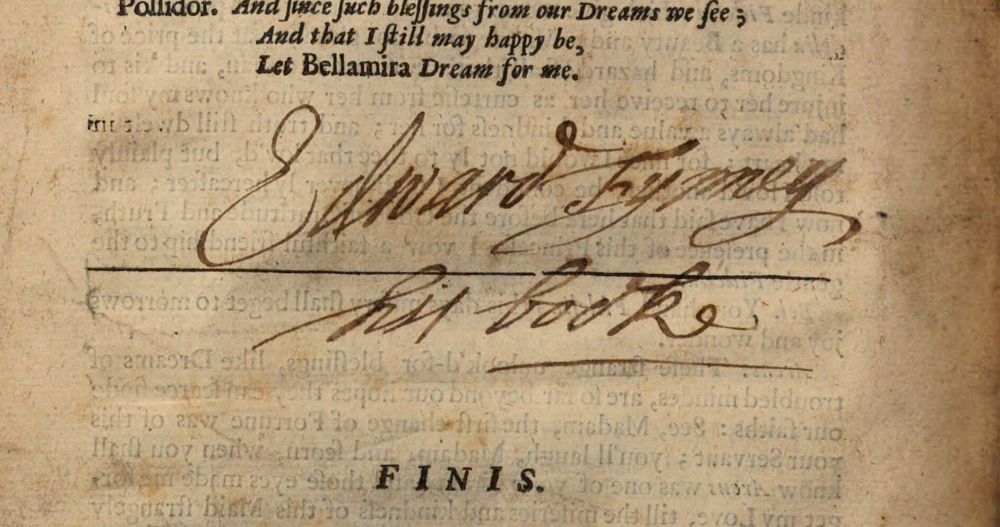 Pollidor. And ſince ſuch bleſſings from our Dreams we ſee;
And that I ſtill may happy be,
Let Bellamira Dream for me.
Edward
his booke
FINIS.